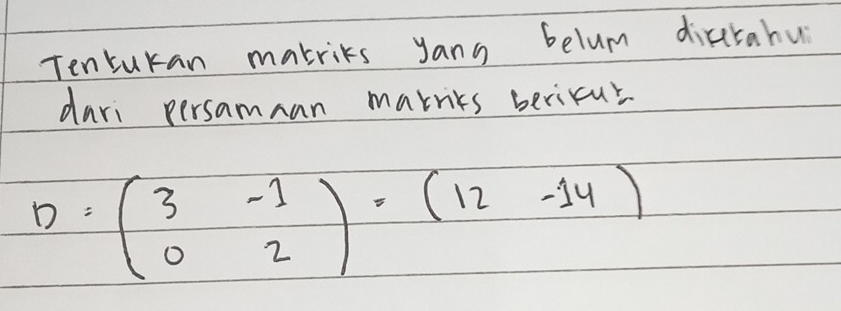 Tentukan matriks yang belum diketahui
dari persamaan matriks berikut
D = ( 3 -1 ) = ( 12 -14 )
0 2